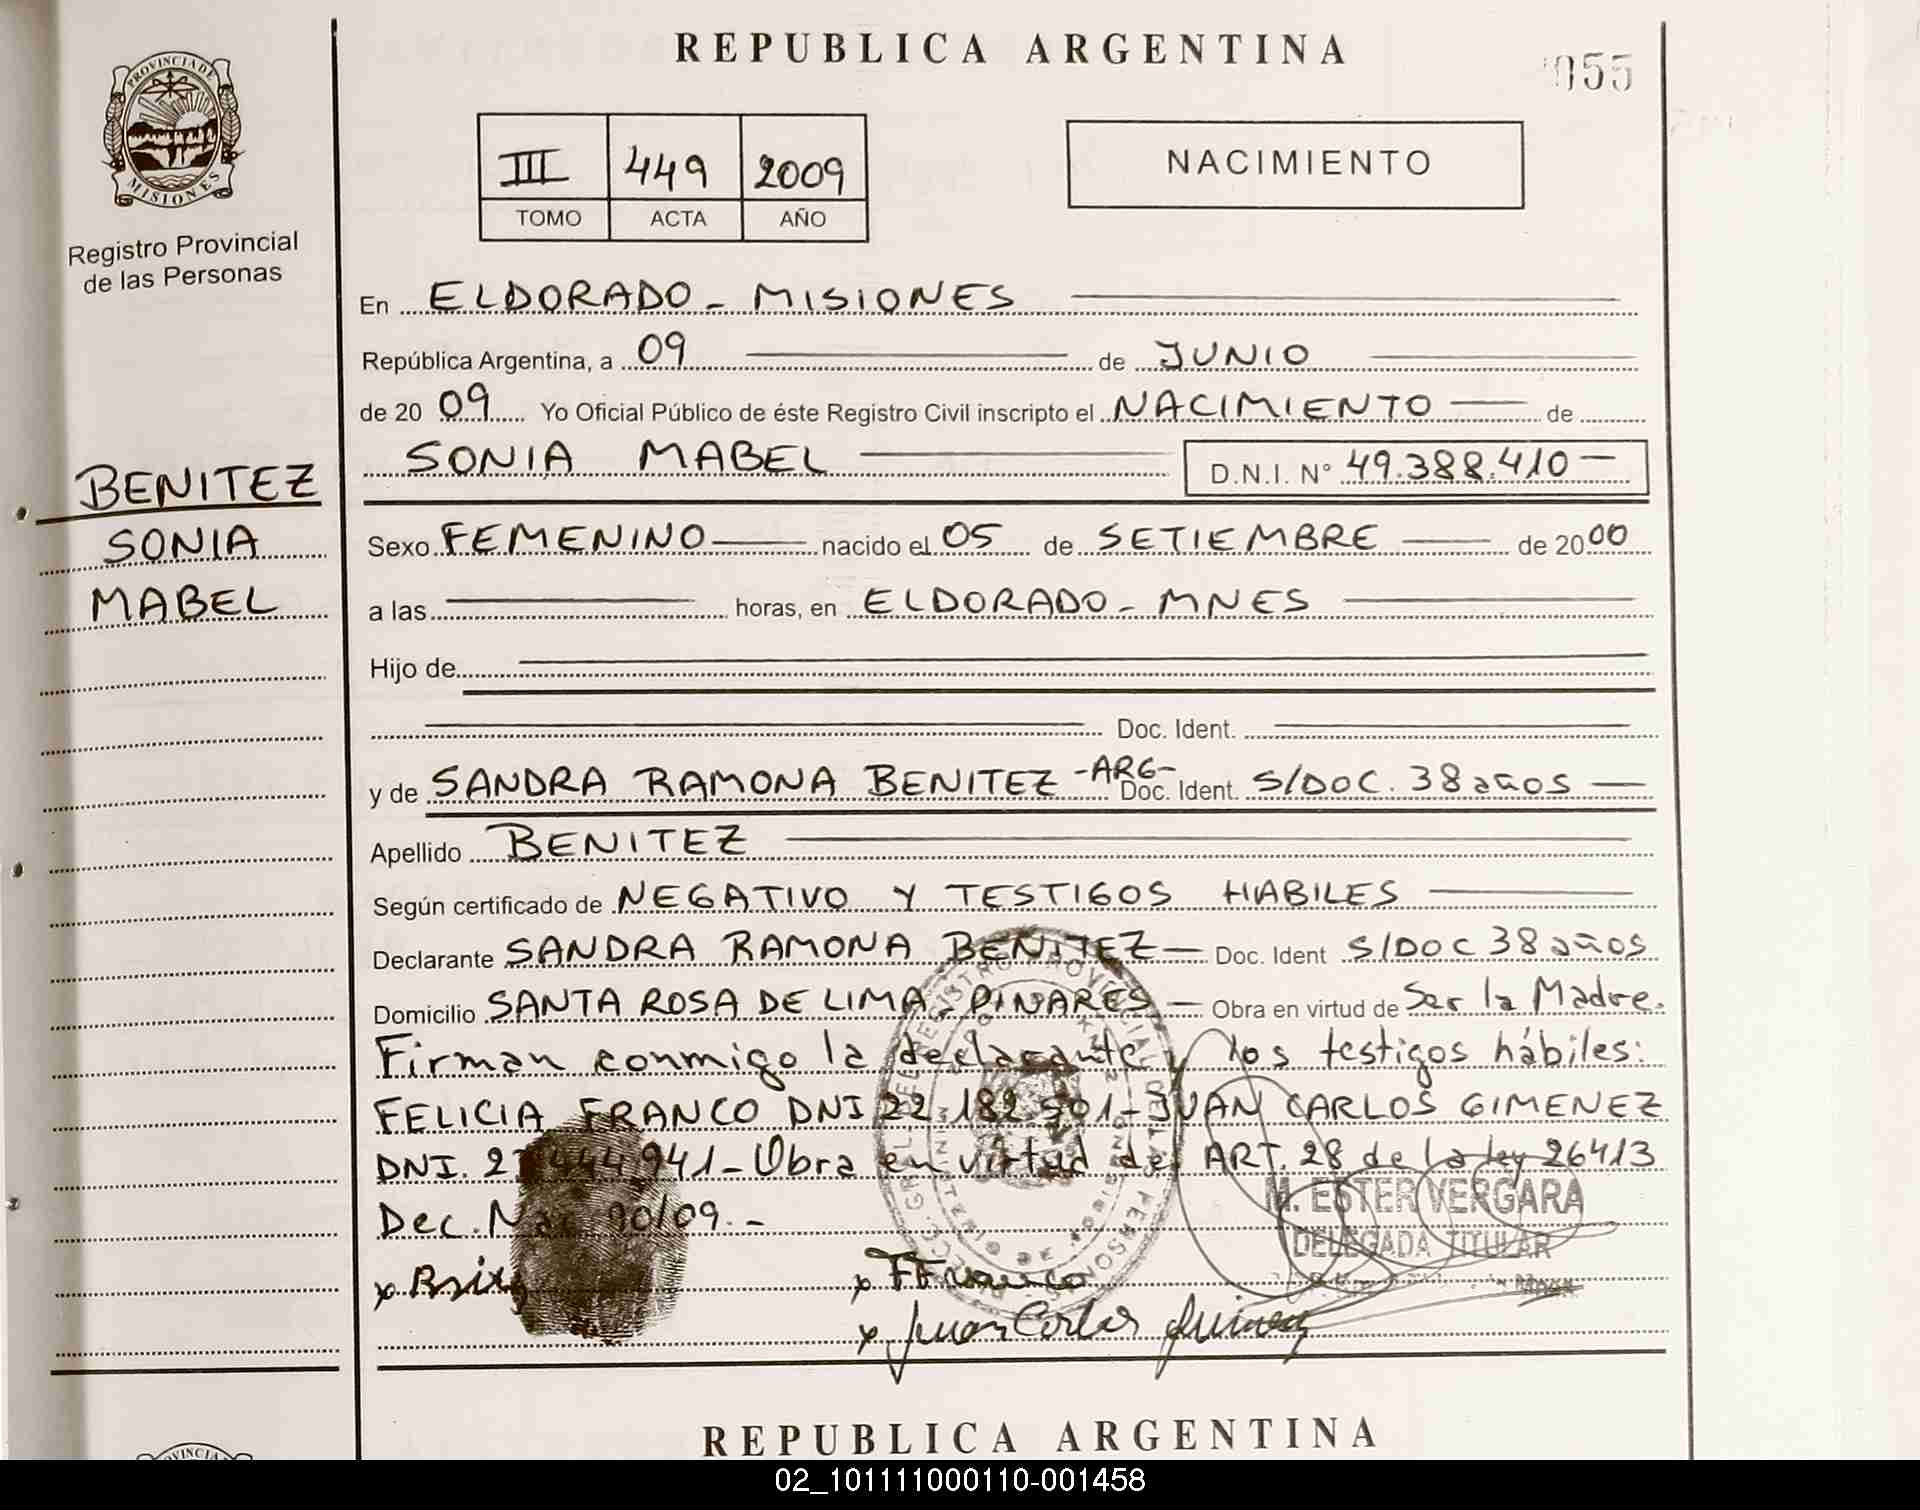 REPUBLICA ARGENTINA
055
PROVINCIA DE
MISIONES
Registro Provincial
de las Personas
III 449 2009
TOMO ACTA AÑO
NACIMIENTO
En ELDORADO - MISIONES
República Argentina, a 09 de JUNIO
de 20 09 Yo Oficial Público de éste Registro Civil inscripto el NACIMIENTO de
SONIA MABEL D.N.I. N° 49.388.410
BENITEZ
SONIA
MABEL
Sexo FEMENINO nacido el 05 de SETIEMBRE de 2000
a las horas, en ELDORADO - MNES
Hijo de
Doc. Ident.
y de SANDRA RAMONA BENITEZ -ARG- Doc. Ident. S/DOC. 38 años
Apellido BENITEZ
Según certificado de NEGATIVO Y TESTIGOS HABILES
Declarante SANDRA RAMONA BENITEZ Doc. Ident S/DOC 38 años
Domicilio SANTA ROSA DE LIMA, PINARES Obra en virtud de Ser la Madre.
Firman conmigo la declarante y los testigos hábiles:
FELICIA FRANCO DNI 22.182.501 - JUAN CARLOS GIMENEZ
DNI. 444 941 - Obra en virtud del ART. 28 de la ley 26413
Dec. /09. -
M. ESTER VERGARA
DELEGADA TITULAR
x
x FFranco
x Juan Carlos Gimenez
REPUBLICA ARGENTINA
02_101111000110-001458